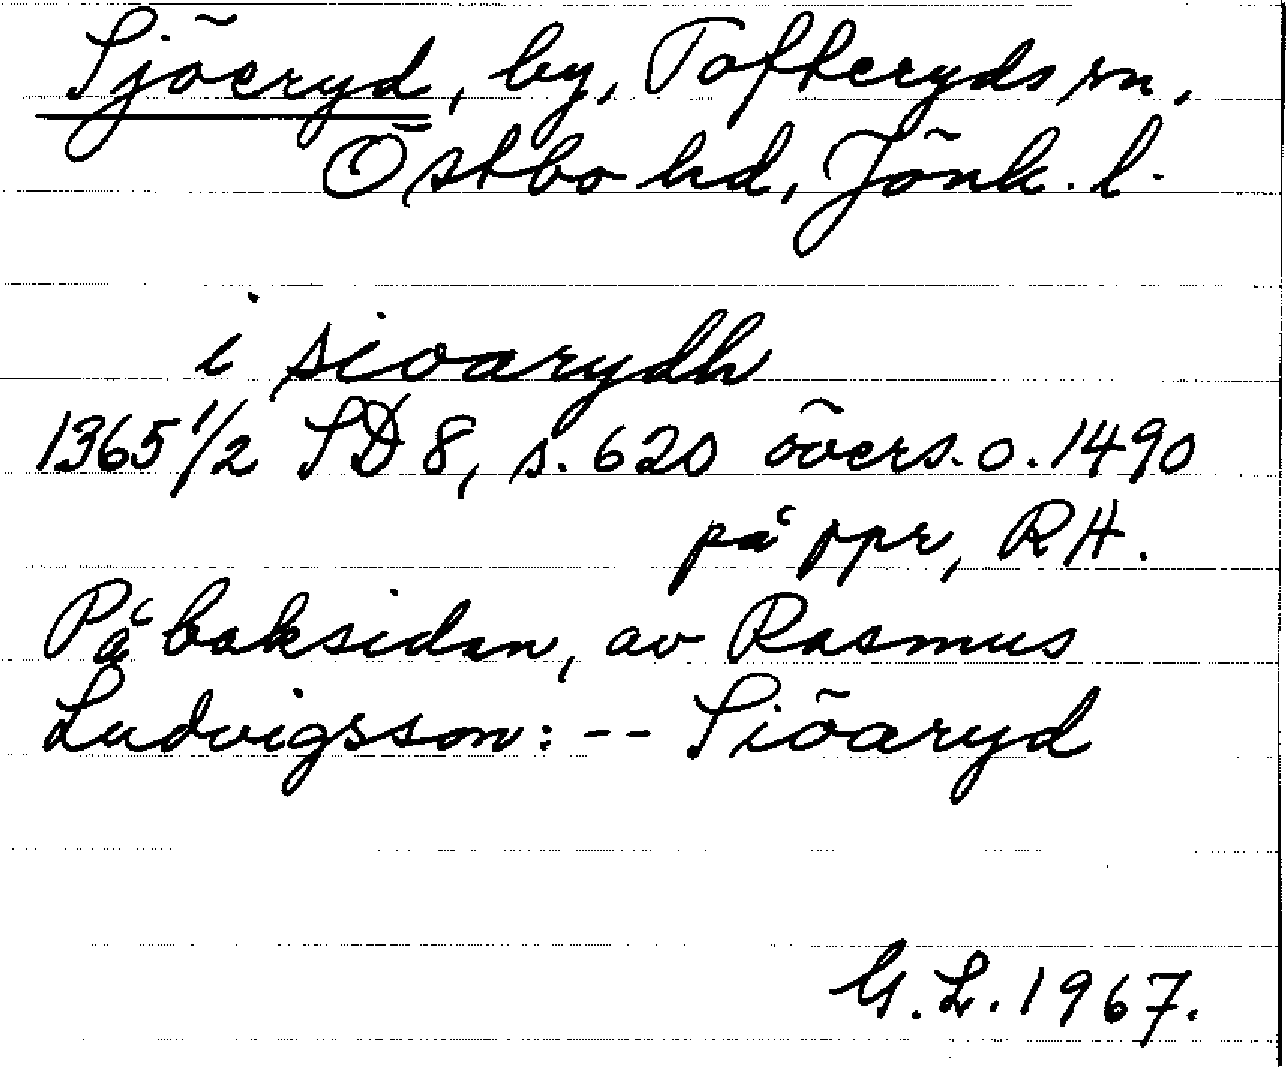 Sjöeryd, by, Tofteryds sn,
Östbo hd, Jönk. l.
i sioarydh
1365 1/2 SD 8, s. 620 övers. o. 1490
på ppr, RA.
På baksidan, av Rasmus
Ludvigsson: -- Siöaryd
G. L. 1967.